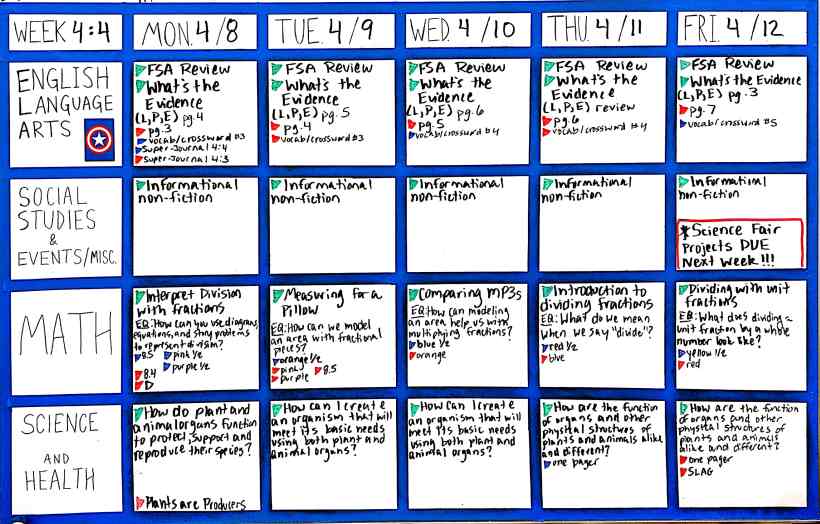 WEEK 4:4
MON. 4/8
TUE. 4/9
WED. 4/10
THU. 4/11
FRI. 4/12
ENGLISH
LANGUAGE
ARTS
FSA Review
What's the
Evidence
(L,P,E) pg.4
pg.3
vocab/crossword #3
Super-Journal 4:4
Super-Journal 4:3
FSA Review
What's the
Evidence
(L,P,E) pg.5
pg.4
vocab/crossword #3
FSA Review
What's the
Evidence
(L,P,E) pg.6
pg.5
vocab/crossword #4
FSA Review
What's the
Evidence
(L,P,E) review
pg.6
vocab/crossword #4
FSA Review
What's the Evidence
(L,P,E) pg.3
pg.7
vocab/crossword #5
SOCIAL
STUDIES
&
EVENTS/MISC.
Informational
non-fiction
Informational
non-fiction
Informational
non-fiction
Informational
non-fiction
Informational
non-fiction
*Science Fair
Projects DUE
Next Week!!!
MATH
Interpret Division
with fractions
EQ: How can you use diagrams,
equations, and story problems
to represent division?
8.5 pink 1/2
purple 1/2
8.4
D
Measuring for a
Pillow
EQ: How can we model
an area with fractional
pieces?
orange 1/2
pink 8.5
purple
Comparing MP3s
EQ: How can modeling
an area help us with
multiplying fractions?
blue 1/2
orange
Introduction to
dividing fractions
EQ: What do we mean
when we say "divide"?
red 1/2
blue
Dividing with unit
fractions
EQ: What does dividing a
unit fraction by a whole
number look like?
yellow 1/2
red
SCIENCE
AND
HEALTH
How do plant and
animal organs function
to protect, support and
reproduce their species?
Plants are Producers
How can I create
an organism that will
meet its basic needs
using both plant and
animal organs?
How can I create
an organism that will
meet its basic needs
using both plant and
animal organs?
How are the function
of organs and other
physical structures of
plants and animals alike
and different?
one pager
How are the function
of organs and other
physical structures of
plants and animals
alike and different?
one pager
SLAG